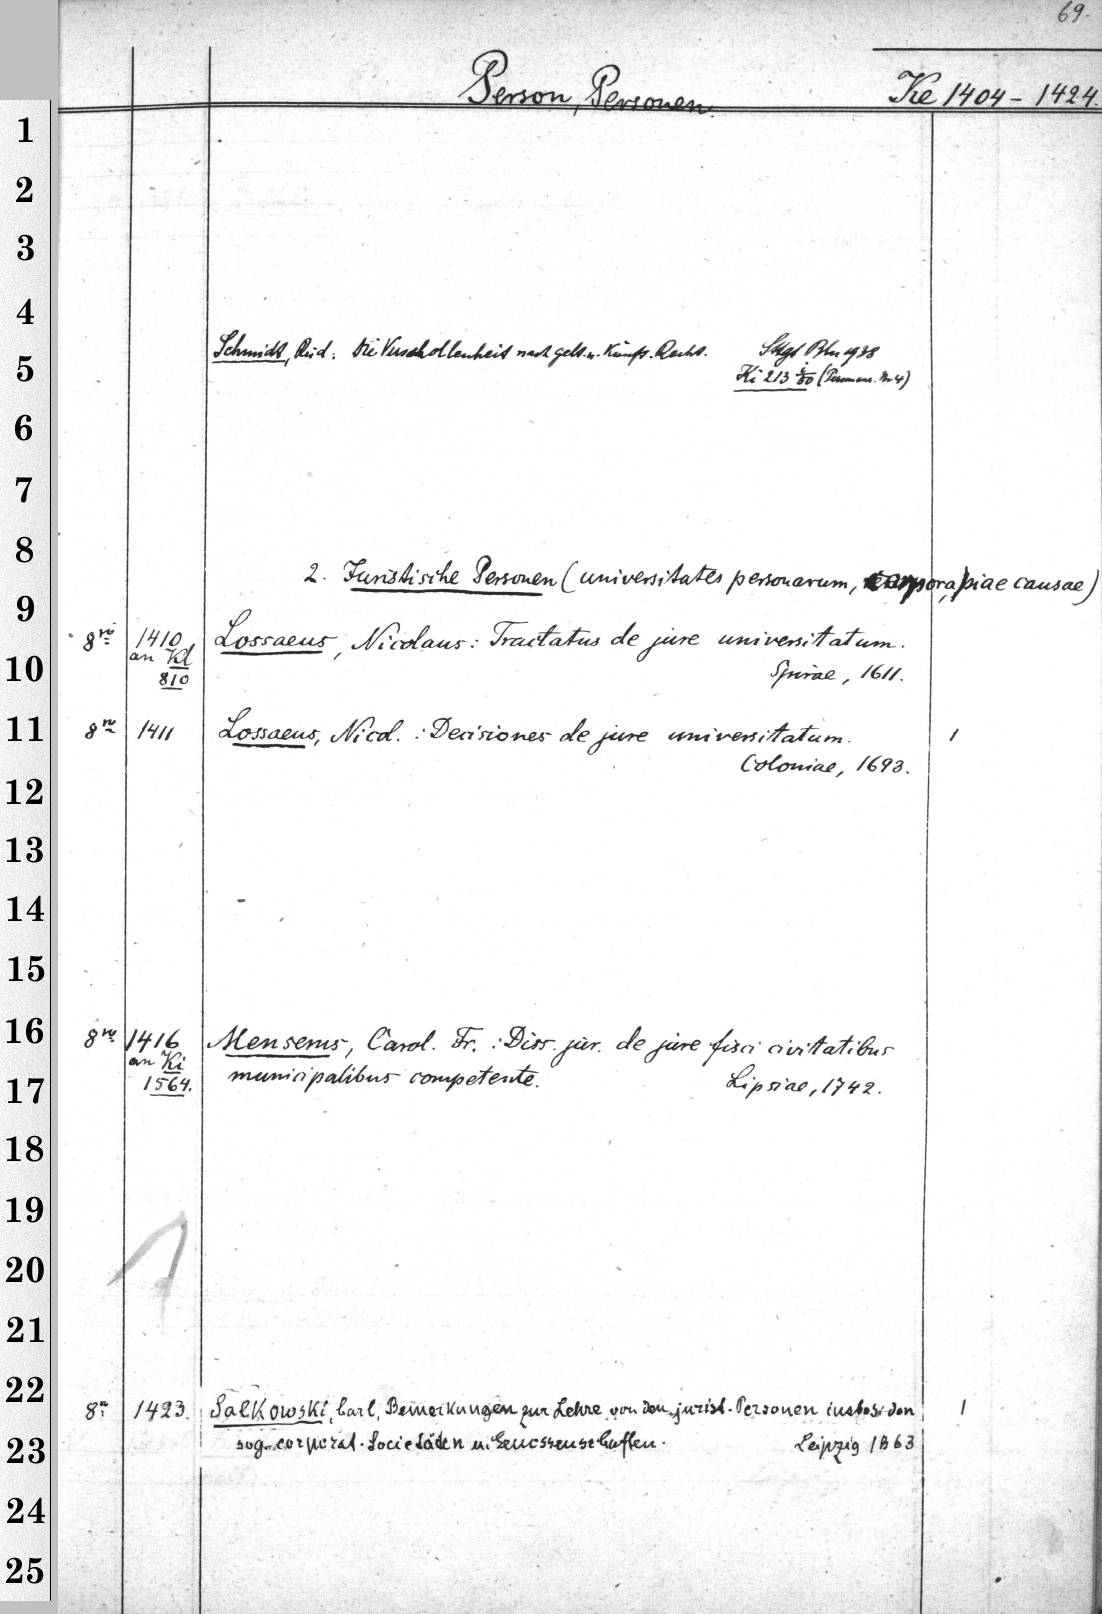 69.
Person, Personen. Ke 1404 - 1424.
1
2
3
4
Schmidt, Rud.: Die Verschollenheit nach gelt. u. künft. Recht. Sttgt Bln 1938
5
Ki 213 i/50 (Personenr. Nr 4)
6
7
8
2. Juristische Personen (universitates personarum, corpora, piae causae)
9
8vo 1410 Lossaeus, Nicolaus: Tractatus de jure universitatum.
an Kl
10
810 Spirae, 1611.
11 8vo 1411 Lossaeus, Nicol.: Decisiones de jure universitatum. 1
Coloniae, 1693.
12
13
14
15
16 8vo 1416 Menserus, Carol. Fr.: Diss. jur. de jure fisci civitatibus
an Ki
17 1564. municipalibus competente. Lipsiae, 1742.
18
19
20
21
22
8vo 1423. Salkowski, Carl, Bemerkungen zur Lehre von den jurist. Personen insbes. den 1
23 sog. corporat. Societäten u. Genossenschaften. Leipzig 1863
24
25